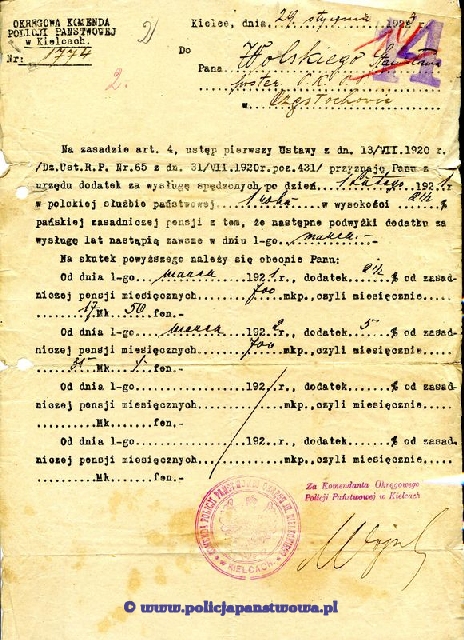 OKRĘGOWA KOMENDA
POLICJI PAŃSTWOWEJ
w Kielcach.
Nr: 1774
2)
2.
Kielce, dnia, 29 stycznia 192 r.
14
Do
Pana Wolskiego
poster. P.K.P.
w Częstochowie
Na zasadzie art. 4, ustęp pierwszy Ustawy z dn. 13/VII.1920 r.
/Dz.Ust.R.P. Nr.65 z dn. 31/VII.1920r.poz.431/ przyznaję Panu z
urzędu dodatek za wysługę spędzonych po dzień 1 lutego 192 r.
w polskiej służbie państwowej w wysokości 2½
pańskiej zasadniczej pensji z tem, że następne podwyżki dodatku za
wysługę lat nastąpią zawsze w dniu 1-go marca.-
Na skutek powyższego należy się obecnie Panu:
Od dnia 1-go marca 1921 r., dodatek 2½ % od zasad-
niczej pensji miesięcznych 700 mkp., czyli miesięcznie
17 Mk. 50 fen.-
Od dnia 1-go marca 1922 r., dodatek 5 % od zasad-
niczej pensji miesięcznych 700 mkp., czyli miesięcznie
35 Mk. fen.-
Od dnia 1-go 192 r., dodatek % od zasad-
niczej pensji miesięcznych mkp., czyli miesięcznie
Mk. fen.-
Od dnia 1-go 192 r., dodatek % od zasad-
niczej pensji miesięcznych mkp., czyli miesięcznie
Mk. fen.-
Za Komendanta Okręgowego
Policji Państwowej w Kielcach
W KIELCACH
© www.policjapanstwowa.pl